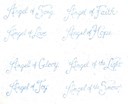 Angel of Song Angel of Faith
Angel of Love Angel of Hope
Angel of Calming Angel of the Light
Angel of Joy Angel of the Snow